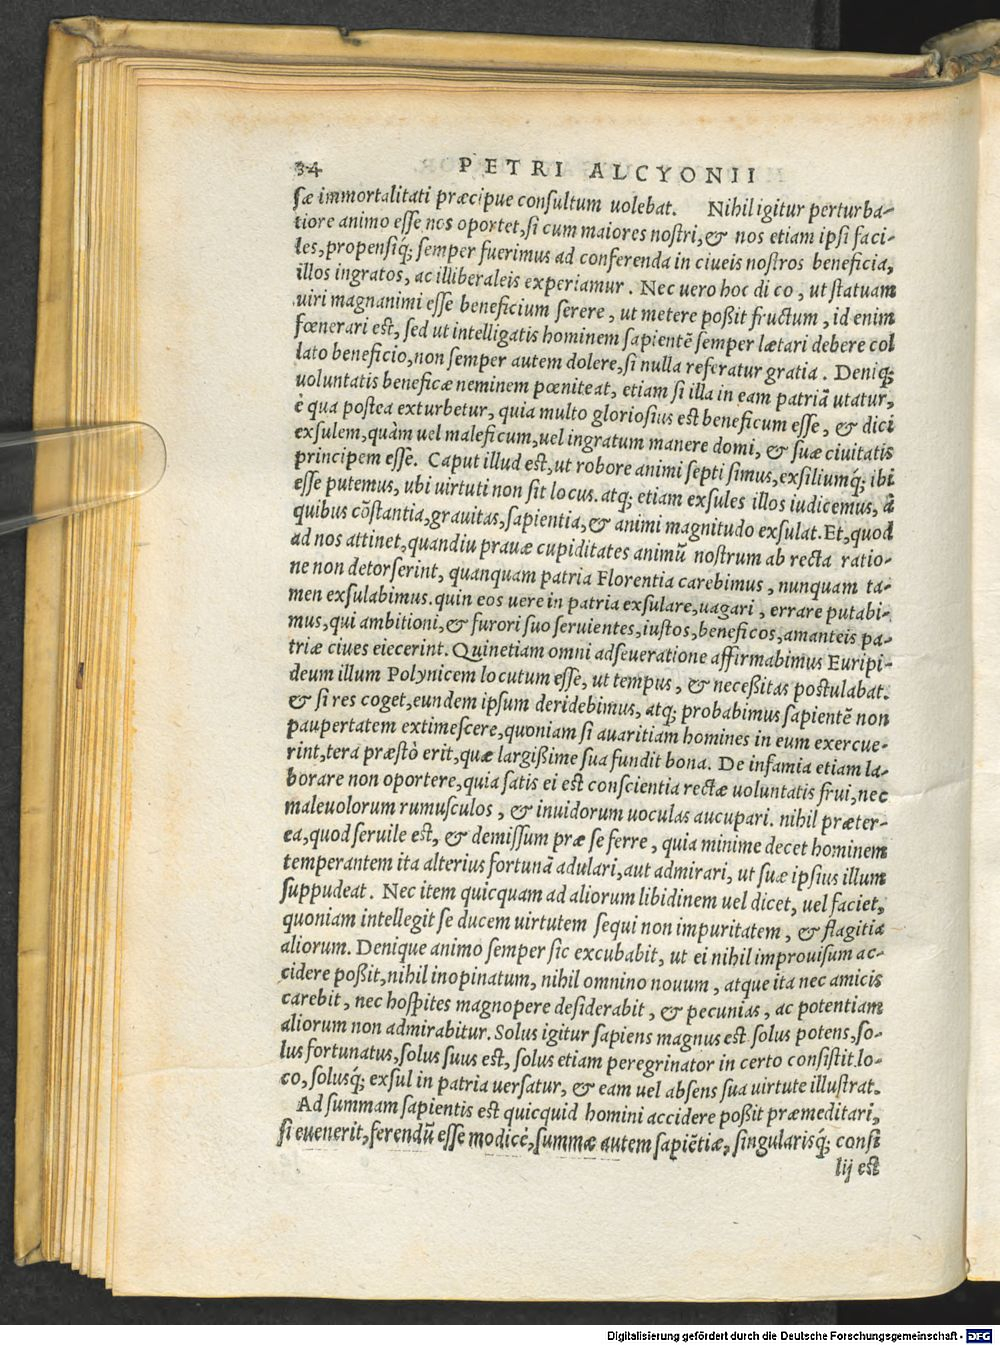 34 PETRI ALCYONII
sæ immortalitati præcipue consultum uolebat. Nihil igitur perturba-
tiore animo esse nos oportet, si cum maiores nostri, & nos etiam ipsi faci-
les, propensiq; semper fuerimus ad conferenda in ciueis nostros beneficia,
illos ingratos, ac illiberaleis experiamur. Nec uero hoc di co, ut statuam
uiri magnanimi esse beneficium serere, ut metere poßit fructum, id enim
fœnerari est, sed ut intelligatis hominem sapientē semper lætari debere col
lato beneficio, non semper autem dolere, si nulla referatur gratia. Deniq;
uoluntatis beneficæ neminem pœniteat, etiam si illa in eam patriā utatur,
è qua postea exturbetur, quia multo gloriosius est beneficum esse, & dici
exsulem, quàm uel maleficum, uel ingratum manere domi, & suæ ciuitatis
principem esse. Caput illud est, ut robore animi septi simus, exsiliumq́; ibi
esse putemus, ubi uirtuti non sit locus. atq; etiam exsules illos iudicemus, à
quibus cōstantia, grauitas, sapientia, & animi magnitudo exsulat. Et, quod
ad nos attinet, quandiu prauæ cupiditates animū nostrum ab recta ratio-
ne non detorserint, quanquam patria Florentia carebimus, nunquam ta-
men exsulabimus. quin eos uere in patria exsulare, uagari, errare putabi-
mus, qui ambitioni, & furori suo seruientes, iustos, beneficos, amanteis pa-
triæ ciues eiecerint. Quinetiam omni adseueratione affirmabimus Euripi-
deum illum Polynicem locutum esse, ut tempus, & necessitas postulabat.
& si res coget, eundem ipsum deridebimus, atq; probabimus sapientē non
paupertatem extimescere, quoniam si auaritiam homines in eum exercue-
rint, terá præstò erit, quæ largißime sua fundit bona. De infamia etiam la-
borare non oportere, quia satis ei est conscientia rectæ uoluntatis frui, nec
maleuolorum rumusculos, & inuidorum uoculas aucupari. nihil præter-
ea, quod seruile est, & demissum præ se ferre, quia minime decet hominem
temperantem ita alterius fortunā adulari, aut admirari, ut suæ ipsius illum
suppudeat. Nec item quicquam ad aliorum libidinem uel dicet, uel faciet,
quoniam intellegit se ducem uirtutem sequi non impuritatem, & flagitia
aliorum. Denique animo semper sic excubabit, ut ei nihil improuisum ac-
cidere poßit, nihil inopinatum, nihil omnino nouum, atque ita nec amicis
carebit, nec hospites magnopere desiderabit, & pecunias, ac potentiam
aliorum non admirabitur. Solus igitur sapiens magnus est solus potens, so-
lus fortunatus, solus suus est, solus etiam peregrinator in certo consistit lo-
co, solusq́; exsul in patria uersatur, & eam uel absens sua uirtute illustrat.
Ad summam sapientis est quicquid homini accidere poßit præmeditari,
si euenerit, ferendū esse modicè, summæ autem sapiētiæ, singularisq́; consi
lij est
Digitalisierung gefördert durch die Deutsche Forschungsgemeinschaft - DFG